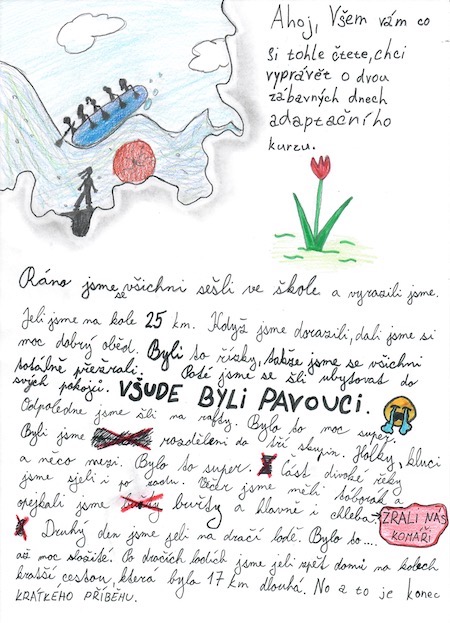 Ahoj, Všem vám co
si tohle čtete, chci
vyprávět o dvou
zábavných dnech
adaptačního
kurzu.
Ráno jsme se všichni sešli ve škole a vyrazili jsme.
Jeli jsme na kole 25 km. Když jsme dorazili, dali jsme si
moc dobrý oběd. Byli to řízky, takže jsme se všichni
totálně přežrali. Poté jsme se šli ubytovat do
svých pokojů. VŠUDE BYLI PAVOUCI.
Odpoledne jsme šli na rafty. Bylo to moc super.
Byli jsme rozděleni do tří skupin. Holky, kluci
a něco mezi. Bylo to super. Část divoké řeky
jsme sjeli i po zadu. Večer jsme měli táborák a
opejkali jsme buřty a hlavně i chleba. → ZRALI NÁS
KOMAŘI
Druhý den jsme jeli na dračí lodě. Bylo to....
až moc složité. Po dračích lodích jsme jeli zpět domů na kolech
kratší cestou, která byla 17 km dlouhá. No a to je konec
KRÁTKÉHO PŘÍBĚHU.